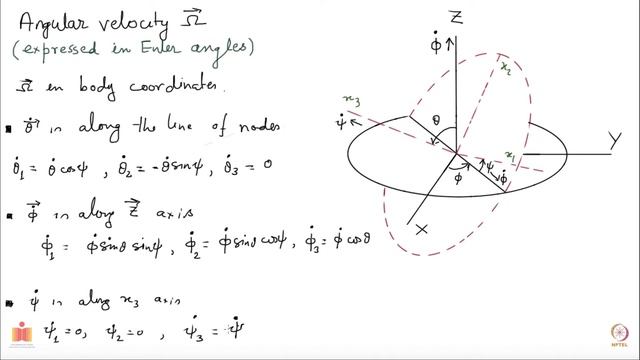 Angular velocity Ω⃗
(expressed in Euler angles)
Ω⃗ in body coordinates.
▪ θ̇⃗ is along the line of nodes
θ̇₁ = θ̇ cosψ , θ̇₂ = -θ̇ sinψ , θ̇₃ = 0
▪ φ̇⃗ is along Z⃗ axis
φ̇₁ = φ̇ sinθ sinψ , φ̇₂ = φ̇ sinθ cosψ , φ̇₃ = φ̇ cosθ
▪ ψ̇ is along x₃ axis
ψ̇₁ = 0, ψ̇₂ = 0 , ψ̇₃ = ψ̇
Z
φ̇
x₂
x₃
ψ̇
θ
x₁
Y
ψ
φ
φ̇
X
NPTEL